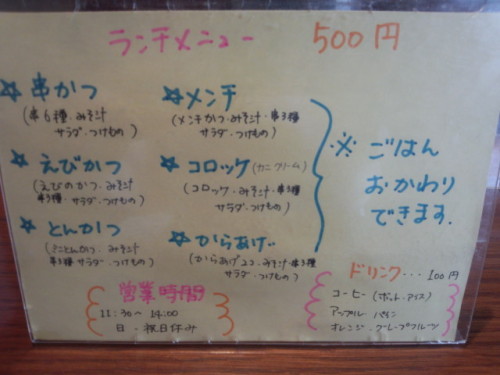 ランチメニュー 500円
☆串かつ
(串6種・みそ汁
サラダ・つけもの)
☆えびかつ
(えびのかつ・みそ汁
串3種・サラダ・つけもの)
☆とんかつ
とんかつ・みそ汁
串3種 サラダ・つけもの)
☆メンチ
(メンチかつ・みそ汁・串3種
サラダ・つけもの)
☆コロッケ(カニクリーム)
(コロッケ・みそ汁・串3種
サラダ・つけもの)
☆からあげ
(からあげ2コ・みそ汁・串3種
サラダ・つけもの)
※ごはん
おかわり
できます.
営業時間
11:30~14:00
日・祝日休み
ドリンク・・・100円
コーヒー(ホット・アイス)
アップル・パイン
オレンジ・グレープフルーツ